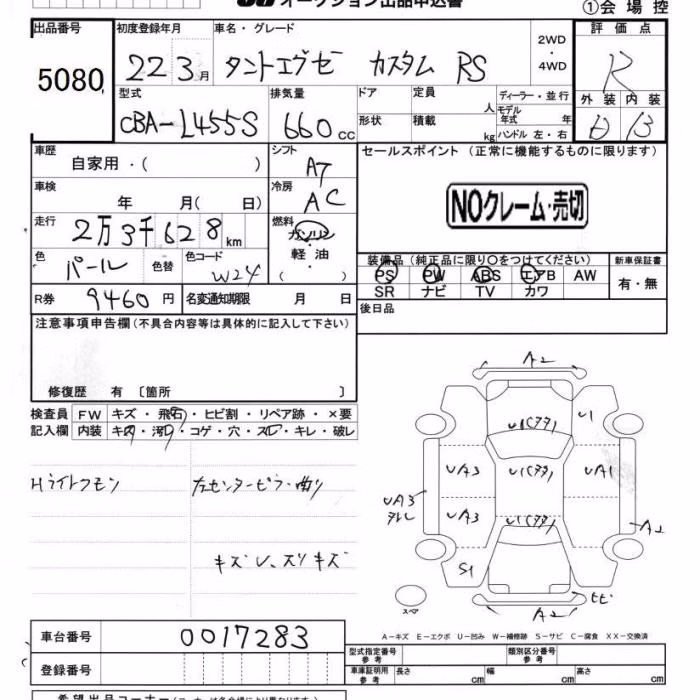 オークション出品申込書
①会場控
出品番号 初度登録年月 車名・グレード 2WD・4WD 評価点
5080 22 3月 タントエグゼ カスタム RS R
型式 排気量 ドア 定員 人 ディーラー・並行 外装 内装
CBA-L455S 660cc 形状 積載 kg モデル年式 年 ハンドル 左・右 B
車歴 自家用・( ) シフト AT セールスポイント (正常に機能するものに限ります)
車検 年 月( 日) 冷房 AC NOクレーム・売切
走行 2万3千628km 燃料 ガソリン・軽油・( )
色 パール 色替 色コード W24
装備品 (純正品に限り○をつけてください) 新車保証書
PS PW ABS エアB AW 有・無
SR ナビ TV カワ
R券 9460円 名変通知期限 月 日 後日品
注意事項申告欄(不具合内容等は具体的に記入して下さい)
修復歴 有 〔箇所 〕
検査員 FW キズ・飛石・ヒビ割・リペア跡・×要
記入欄 内装 キ内・汚・コゲ・穴・スレ・キレ・破レ
Hライトクモン 左センターピラー曲り
キズ凹、スリキズ
A2
U1(タタ) U1
UA3 U1(タタ) UA1
UA3 UA3 U1(タタ) A2
S1
スペア A2 ヒビ
A-キズ E-エクボ U-凹み W-補修跡 S-サビ C-腐食 XX-交換済
車台番号 0017283
型式指定番号 参考 類別区分番号 参考
登録番号 車庫証明用 参考 長さ cm 幅 cm 高さ cm
希望出品コーナー